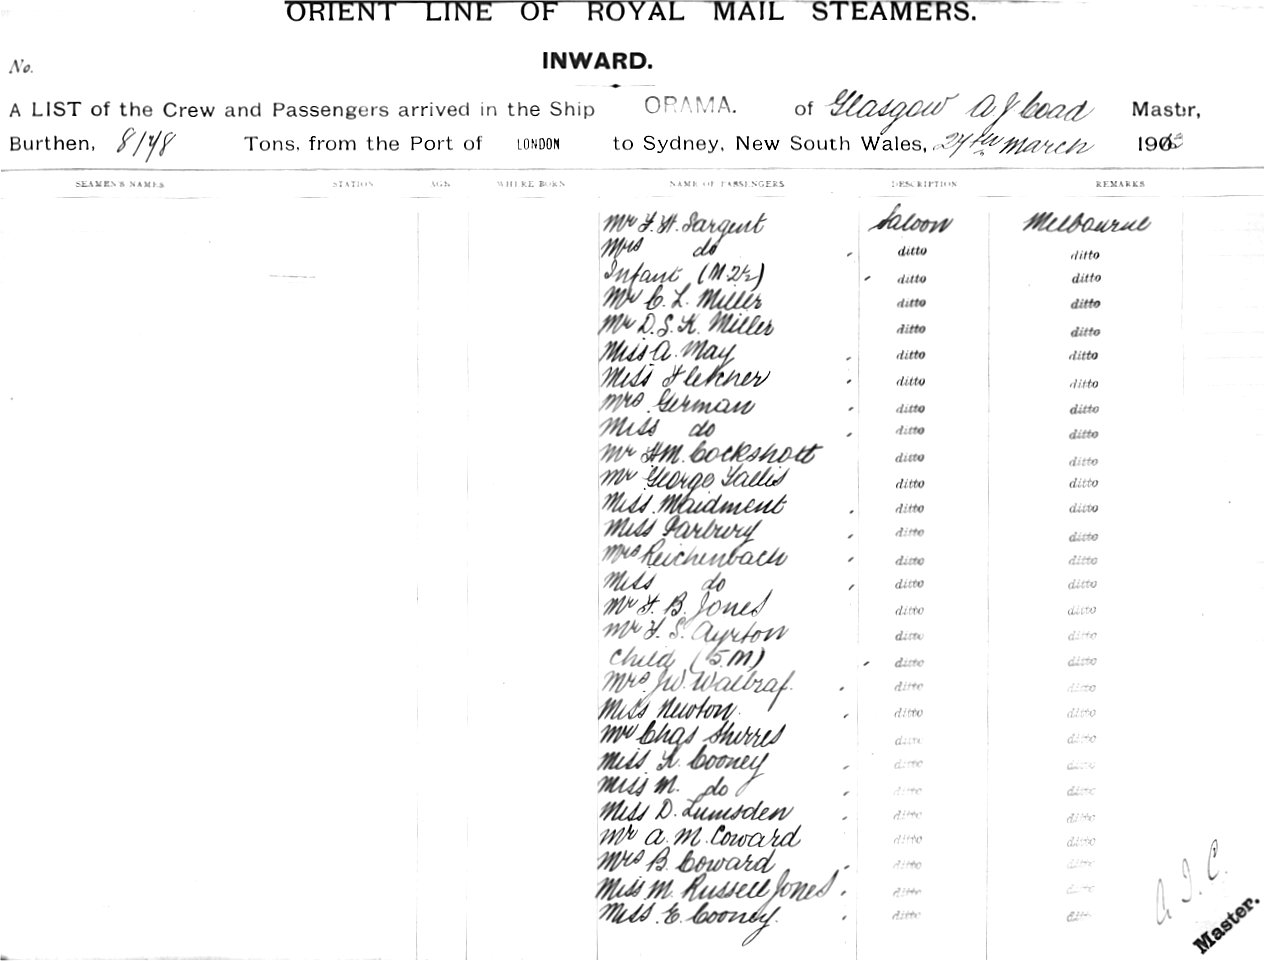 ORIENT LINE OF ROYAL MAIL STEAMERS.
INWARD.
No.
A LIST of the Crew and Passengers arrived in the Ship ORAMA. of Glasgow A J Coad Master,
Burthen, 8148 Tons, from the Port of LONDON to Sydney, New South Wales, 27th March 1913
SEAMEN'S NAMES STATION AGE WHERE BORN NAME OF PASSENGERS DESCRIPTION REMARKS
Mr F. H. Sargent Saloon Melbourne
Mrs do ditto ditto
Infant (M 2½) ditto ditto
Mr C. L. Miller ditto ditto
Mr D. S. K. Miller ditto ditto
Miss A. May ditto ditto
Miss Flekner ditto ditto
Mrs German ditto ditto
Miss do ditto ditto
Mr HM. Cockshott ditto ditto
Mr George Tallis ditto ditto
Miss Maidment ditto ditto
Miss Farbury ditto ditto
Mrs Reichenbach ditto ditto
Miss do ditto ditto
Mr F. B. Jones ditto ditto
Mr F. S. Ayrton ditto ditto
Child (5. M) ditto ditto
Mrs J W. Wallraf. ditto ditto
Miss Newton. ditto ditto
Mr Chas Shirres ditto ditto
Miss K. Cooney ditto ditto
Miss M. do ditto ditto
Miss D. Lumsden ditto ditto
Mr A. M. Coward ditto ditto
Mrs B. Coward ditto ditto
Miss M. Russell Jones ditto ditto
Miss E. Cooney. ditto ditto
A. J. C.
Master.